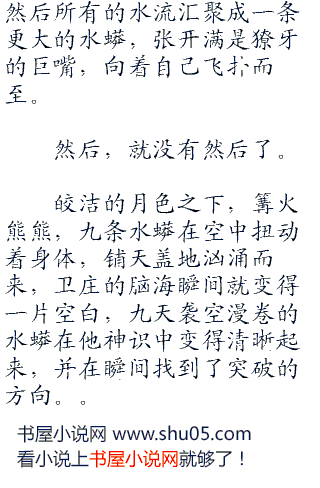 然后所有的水流汇聚成一条
更大的水蟒，张开满是獠牙
的巨嘴，向着自己飞扑而
至。
然后，就没有然后了。
皎洁的月色之下，篝火
熊熊，九条水蟒在空中扭动
着身体，铺天盖地汹涌而
来，卫庄的脑海瞬间就变得
一片空白，九天袭空漫卷的
水蟒在他神识中变得清晰起
来，并在瞬间找到了突破的
方向。。
书屋小说网 www.shu05.com
看小说上书屋小说网就够了！